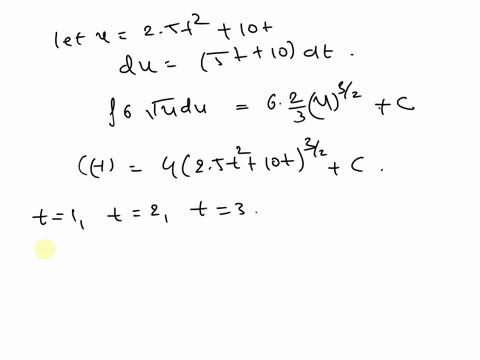 let u = 2.5t² + 10t
du = (5t + 10) dt .
∫6 √u du = 6. 2/3 (u)^3/2 + C
C(t) = 4(2.5t² + 10t)^3/2 + C .
t = 1, t = 2, t = 3 .